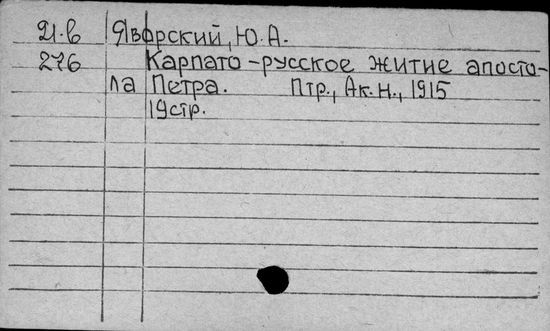 21.в Яворский, Ю.А.
276 Карпато-русское житие апосто-
ла Петра. Птр., Ак.Н., 1915
19стр.